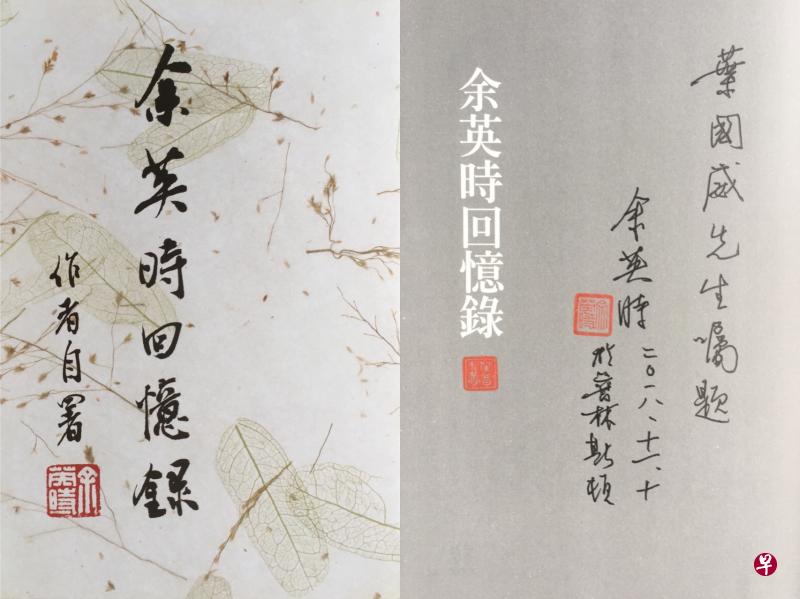 余英時回憶錄
作者自署
余英時
余英時回憶錄
葉國威先生囑題
余英時
二〇一八、十一、十
於普林斯頓
早